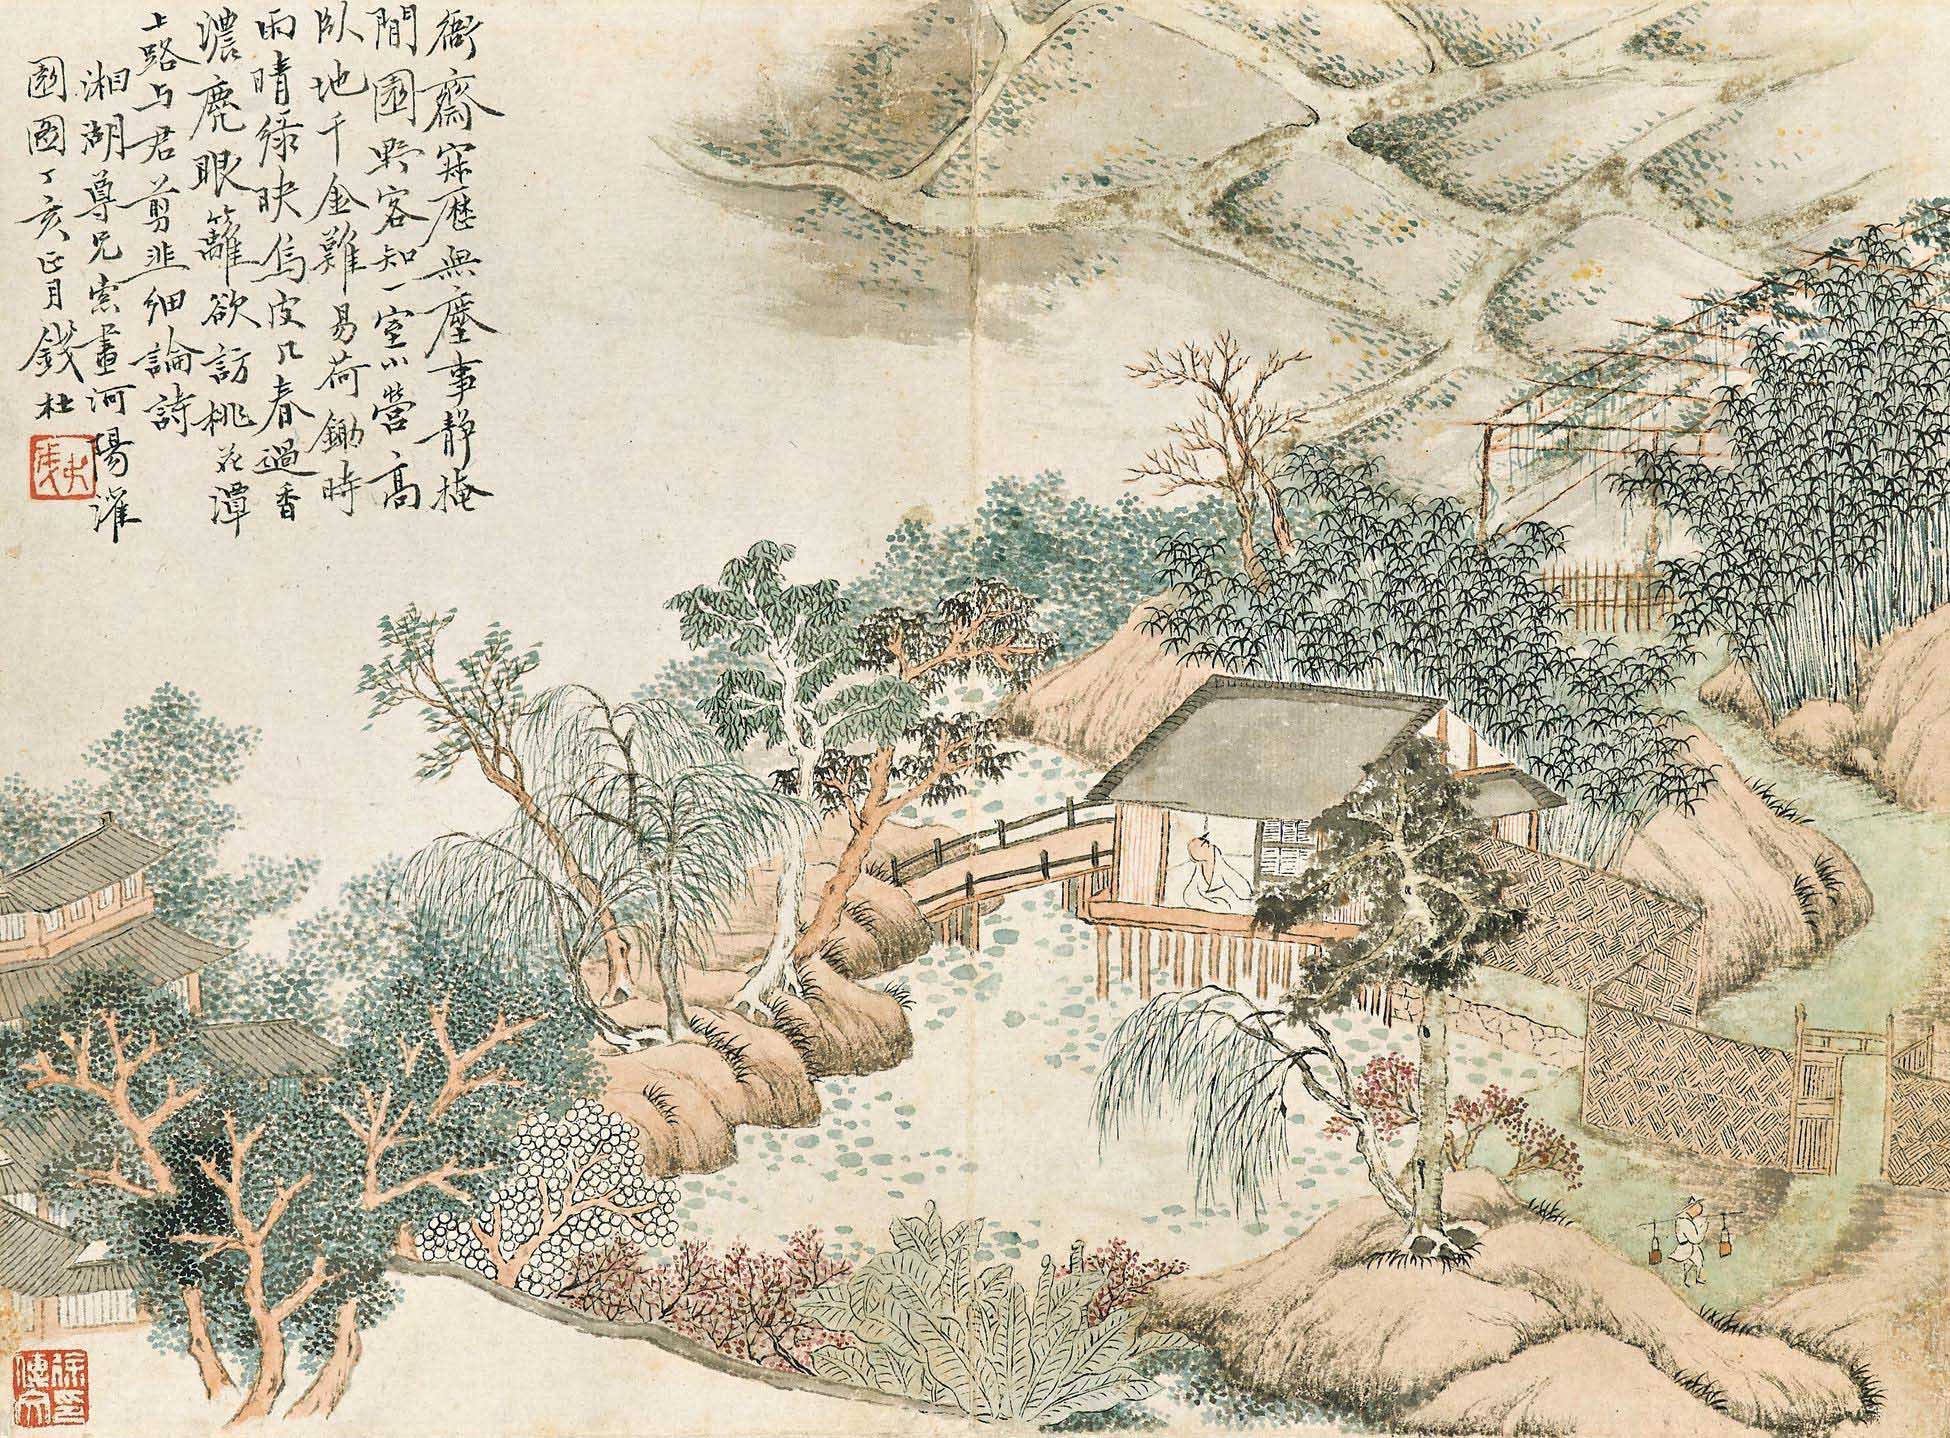 衙齋寂歷無塵事靜掩
閒園野客知一室小營高
臥地千金難易荷鋤時
雨晴綠映烏皮几春過香
濃麂眼籬欲訪桃花潭
上路与君剪韭細論詩
湘湖尊兄索畫河陽灌
園圖丁亥正月錢杜